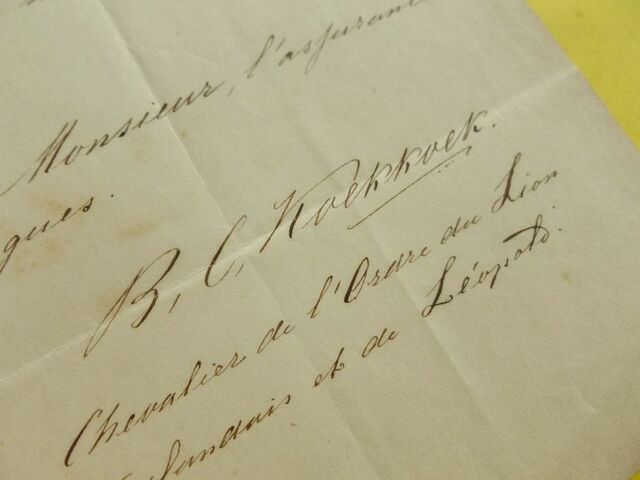 Monsieur, l'assuran
gues.
B. C. Koekkoek.
Chevalier de l'Ordre du Lion
landais et de Léopold.